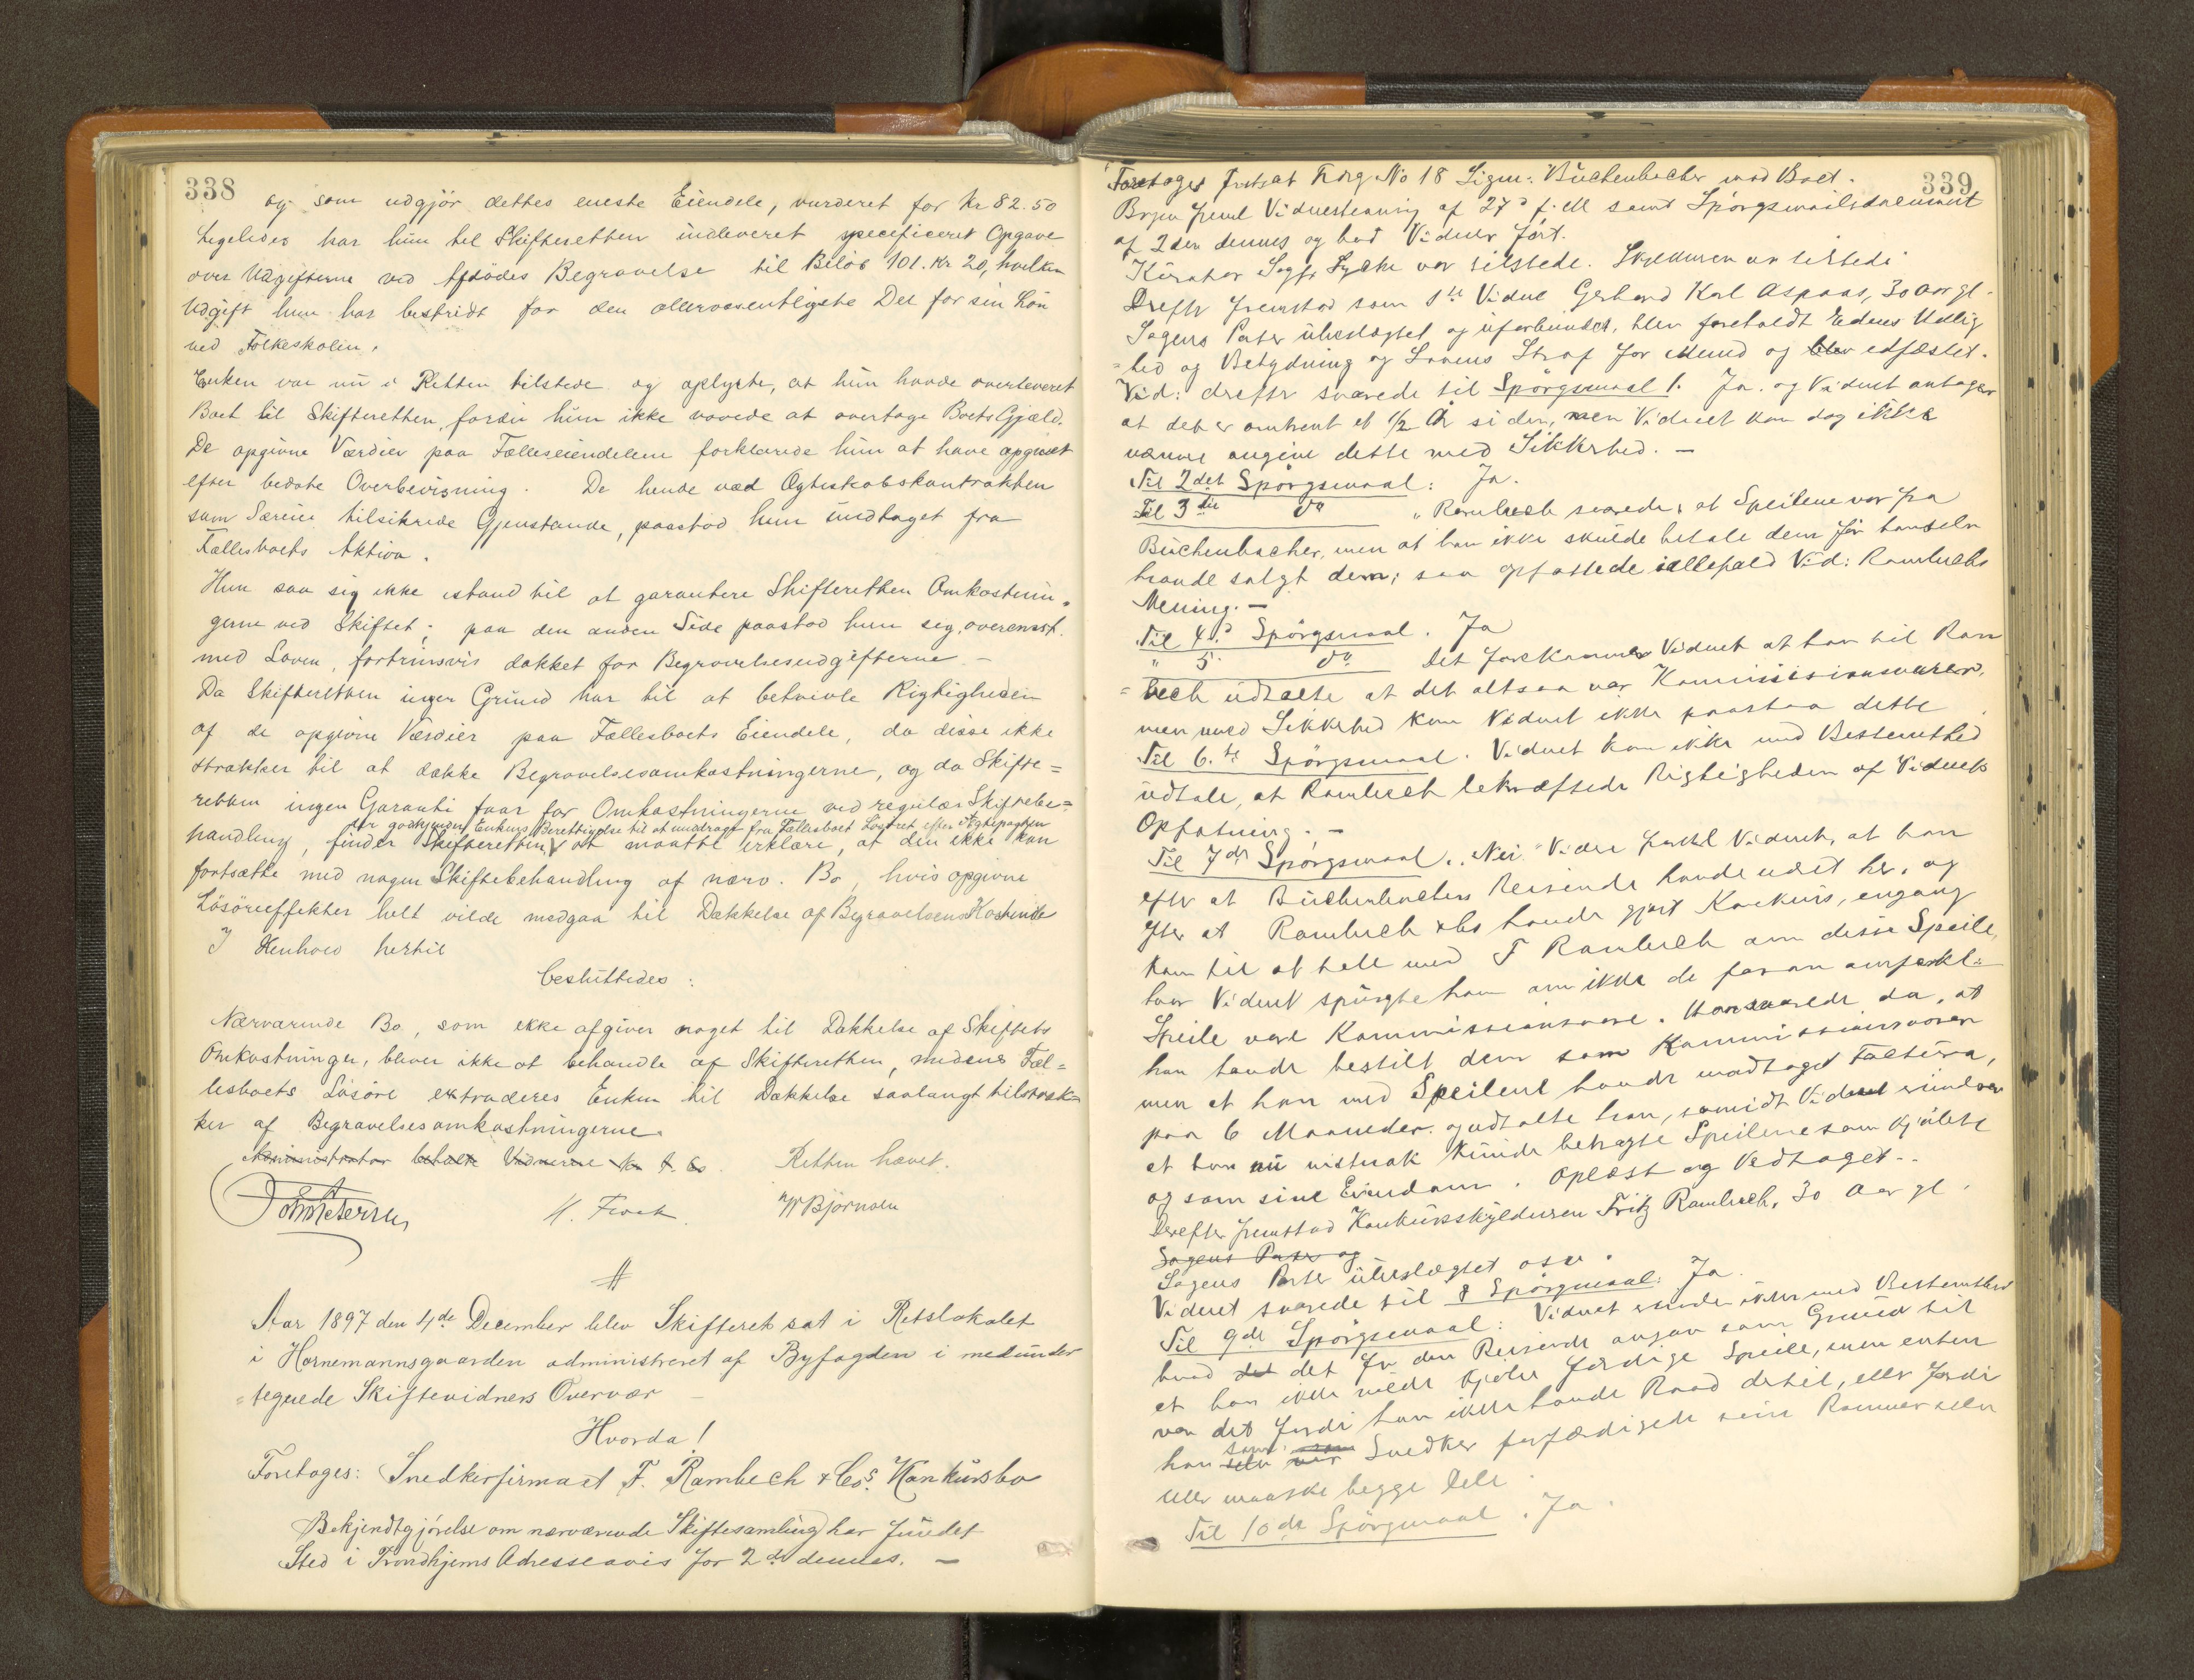 338
og som udgjör dettes eneste Eiendele, vurderet for Kr 82.50
Ligeledes har hun til Skifteretten indleveret specificeret Opgave
over Udgifterne ved Afdödes Begravelse til Belöb 101. Kr 20, hvilken
Udgift hun har bestridt for den allervæsentligste Del for sin Lön
ved Folkeskolen.
Enken var nu i Retten tilstede og oplyste, at hun havde overleveret
Boet til Skifteretten, fordi hun ikke vovede at overtage Boets Gjæld.
De opgivne Værdier paa Fælleseiendelene forklarede hun at have opgivet
efter bedste Overbevisning. De hende ved Ægteskabskontrakten
som Særeie tilsikrede Gjenstande, paastod hun undtaget fra
Fællesboets Aktiva.
Hun saa sig ikke istand til at garantere Skifteretten Omkostnin-
gerne ved Skiftet; paa den anden Side paastod hun sig, overensst.
med Loven, fortrinsvis dækket for Begravelsesudgifterne –
Da Skifteretten ingen Grund har til at betvivle Rigtigheden
af de opgivne Værdier paa Fællesboets Eiendele, da disse ikke
strækker til at dække Begravelsesomkostningerne, og da Skifte=
retten ingen Garanti faar for Omkostningerne ved regulær Skiftebe=
der godkjender Enkens Berettigelse til at unddrage fra Fællesboet Lösöret efter Ægtepagten
handling, finder Skifteretten, at maatte erklære, at den ikke kan
fortsætte med nogen Skiftebehandling af nærv. Bo, hvis opgivne
Lösöreeffekter helt vilde medgaa til Dækkelse af Begravelsens Kostende
I Henhold hertil
besluttedes:
Nærværende Bo, som ikke afgiver noget til Dækkelse af Skiftets
Omkostninger, bliver ikke at behandle af Skifteretten, medens Fæl=
lesboets Lösöre extraderes Enken til Dækkelse saalangt tilstræk-
ker af Begravelsesomkostningerne
Administrator betalte Vidnerne Kr. Retten hævet.
H. Frock W Björnsen
#
Aar 1897 den 4de December blev Skifteret sat i Retslokalet
i Hornemannsgaarden administreret af Byfogden i medunder
=tegnede Skiftevidners Overvær –
Hvorda!
Foretoges: Snedkerfirmaet F. Rambech & Cos. Konkursbo
Bekjendtgjörelse om nærværende Skiftesamling har fundet
Sted i Trondhjems Adresseavis for 2de dennes. –
339
Foretoges fortsat Krag No 18 Sigm. Büchenbacher mod Boet.
af 2den dennes og bad Vidner fört.
Kurator Sagf. Lycke var tilstede. Skyldneren var tilstede
Derefter fremstod som 1ste Vidne Gerhard Karl Aspaas, 30 Aar gl.
Sagens Parter ubeslægtet og uforbundet, blev foreholdt Edens Hellig
=hed og Betydning og Lovens Straf for Mened og blev edfæstet.
Vid: derefter svarede til Spörgsmaal 1. Ja. og Vidnet antager
at det er omtrent et 1/2 Aar siden, men Vidnet kan dog ikke
nærme angive dette med Sikkerhed. –
Til 2det Spörgsmaal: Ja.
Til 3die do " Rambech svarede, at Speilene var fra
Büchenbacher, men at han ikke skulde betale dem för han selv
havde solgt dem; saa opfattede iallefald Vid: Rambechs
Mening. –
Til 4de Spörgsmaal. Ja
" 5. do Det forekommer Vidnet at han til Ram
=bech udtalte at det altsaa var Kommissionsvarer,
men med Sikkerhed kan Vidnet ikke paastaa dette
Til 6.te Spörgsmaal. Vidnet kan ikke med Bestemthed
udtale, at Rambech bekræftede Rigtigheden af Vidnets
Opfatning. –
Til 7de Spörgsmaal. "Nei" Videre forkl Vidnet, at han
efter at Büchenbachers Reisende havde været her, og
efter at Rambech & Co havde gjort Konkurs, engang
kom til at tale med F Rambech om disse Speile,
hvor Vidnet spurgte ham om ikke de foran omforkl=
Speile vare Kommissionsvare. Han svarede da, at
han havde bestilt dem som Kommissionsvarer
men at han med Speilene havde modtaget Factura,
paa 6 Maaneder. og udtalte han, saavidt Vidnet erindrer
at han nu vistnok kunde betragte Speilene som kjöbte
og som sine Eiendom. Oplæst og Vedtaget. –
Derefter fremstod Konkursskyldneren Fritz Rambech, 30 Aar gl.
Sagens Parter og
Sagens Parter ubeslægtet osv.
Vidnet svarede til 8 Spörgsmaal: Ja.
Til 9de Spörgsmaal: Vidnet erindrer ikke med Bestemthed
hvad det det for den Reisende angav som Grund til
at han ikke vilde kjöbe færdige Speile, men enten
var det fordi han ikke havde Raad dertil, eller fordi
han som Snedker forfærdigede sine Rammer selv
eller maaske begge Dele
Til 10de Spörgsmaal. Ja.